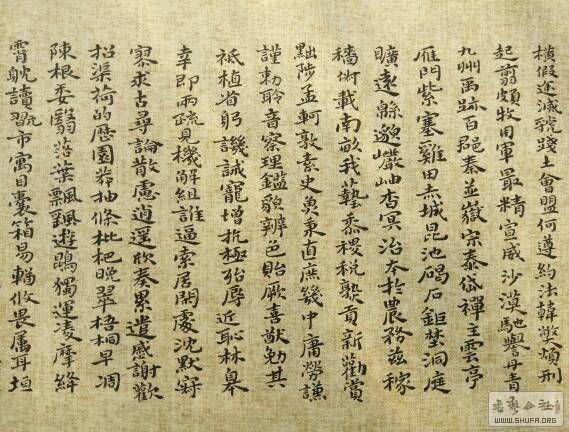 橫假途滅虢踐土會盟何遵約法韓弊煩刑
起翦頗牧用軍最精宣威沙漠馳譽丹青
九州禹跡百郡秦並嶽宗泰岱禪主雲亭
雁門紫塞雞田赤城昆池碣石鉅埜洞庭
曠遠緜邈巖岫杳冥治本於農務茲稼
穡俶載南畝我藝黍稷稅熟貢新勸賞
黜陟孟軻敦素史魚秉直庶幾中庸勞謙
謹勑聆音察理鑑貌辨色貽厥嘉猷勉其
祗植省躬譏誡寵增抗極殆辱近恥林皋
幸即兩疏見機解組誰逼索居閑處沈默寂
寥求古尋論散慮逍遙欣奏累遣慼謝歡
招渠荷的歷園莽抽條枇杷晚翠梧桐早凋
陳根委翳落葉飄颻遊鵾獨運凌摩絳
霄耽讀翫市寓目囊箱易輶攸畏屬耳垣
WWW.SHUFA.ORG